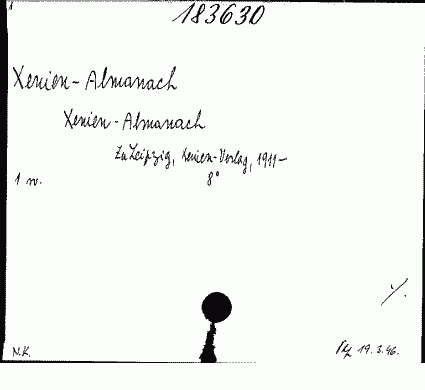 183630
Xenien-Almanach
Xenien-Almanach
Zu Leipzig, Xenien-Verlag, 1911-
8°
1 w.
N.K.
19.3.46.